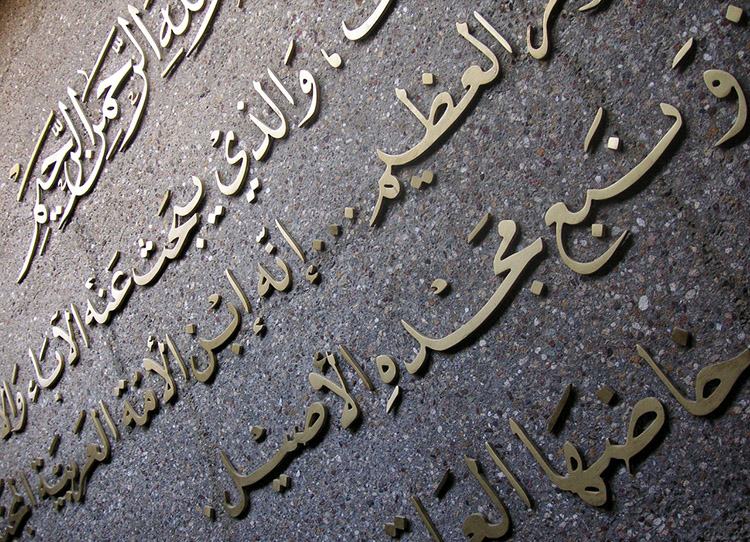 الله الرَّحْمنِ الرَّحِيْمِ
، وَالذيْ يبحَث عَنْه الآبَاء
العظيم ... إنّه ابْن الأمّة العَربيّة
وَنبَع مَجْدهِ الأصيْل .
خاضهَا